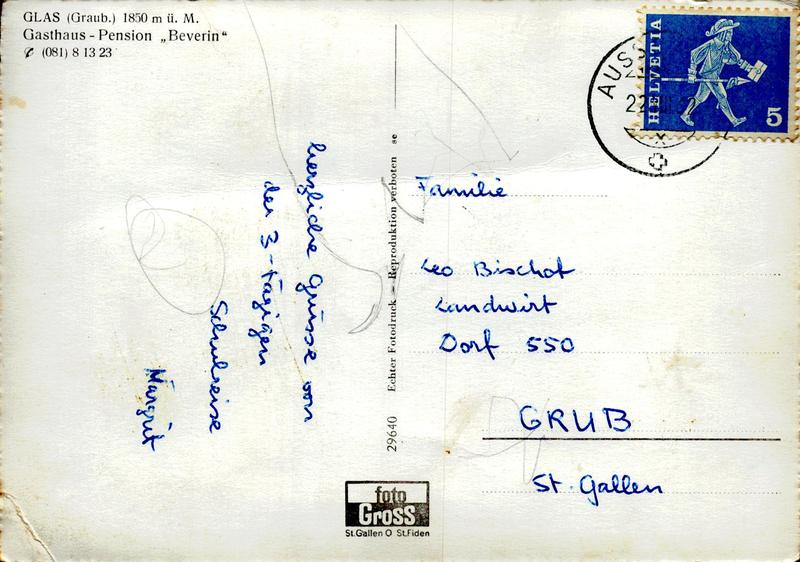 GLAS (Graub.) 1850 m ü. M.
Gasthaus - Pension „Beverin“
✆ (081) 8 13 23
herzliche Grüsse von
der 3-tägigen
Schulreise
Margrit
29640 Echter Fotodruck – Reproduktion verboten se
foto
Gross
St.Gallen O St.Fiden
HELVETIA
5
Familie
Leo Bischof
Landwirt
Dorf 550
GRUB
St. Gallen